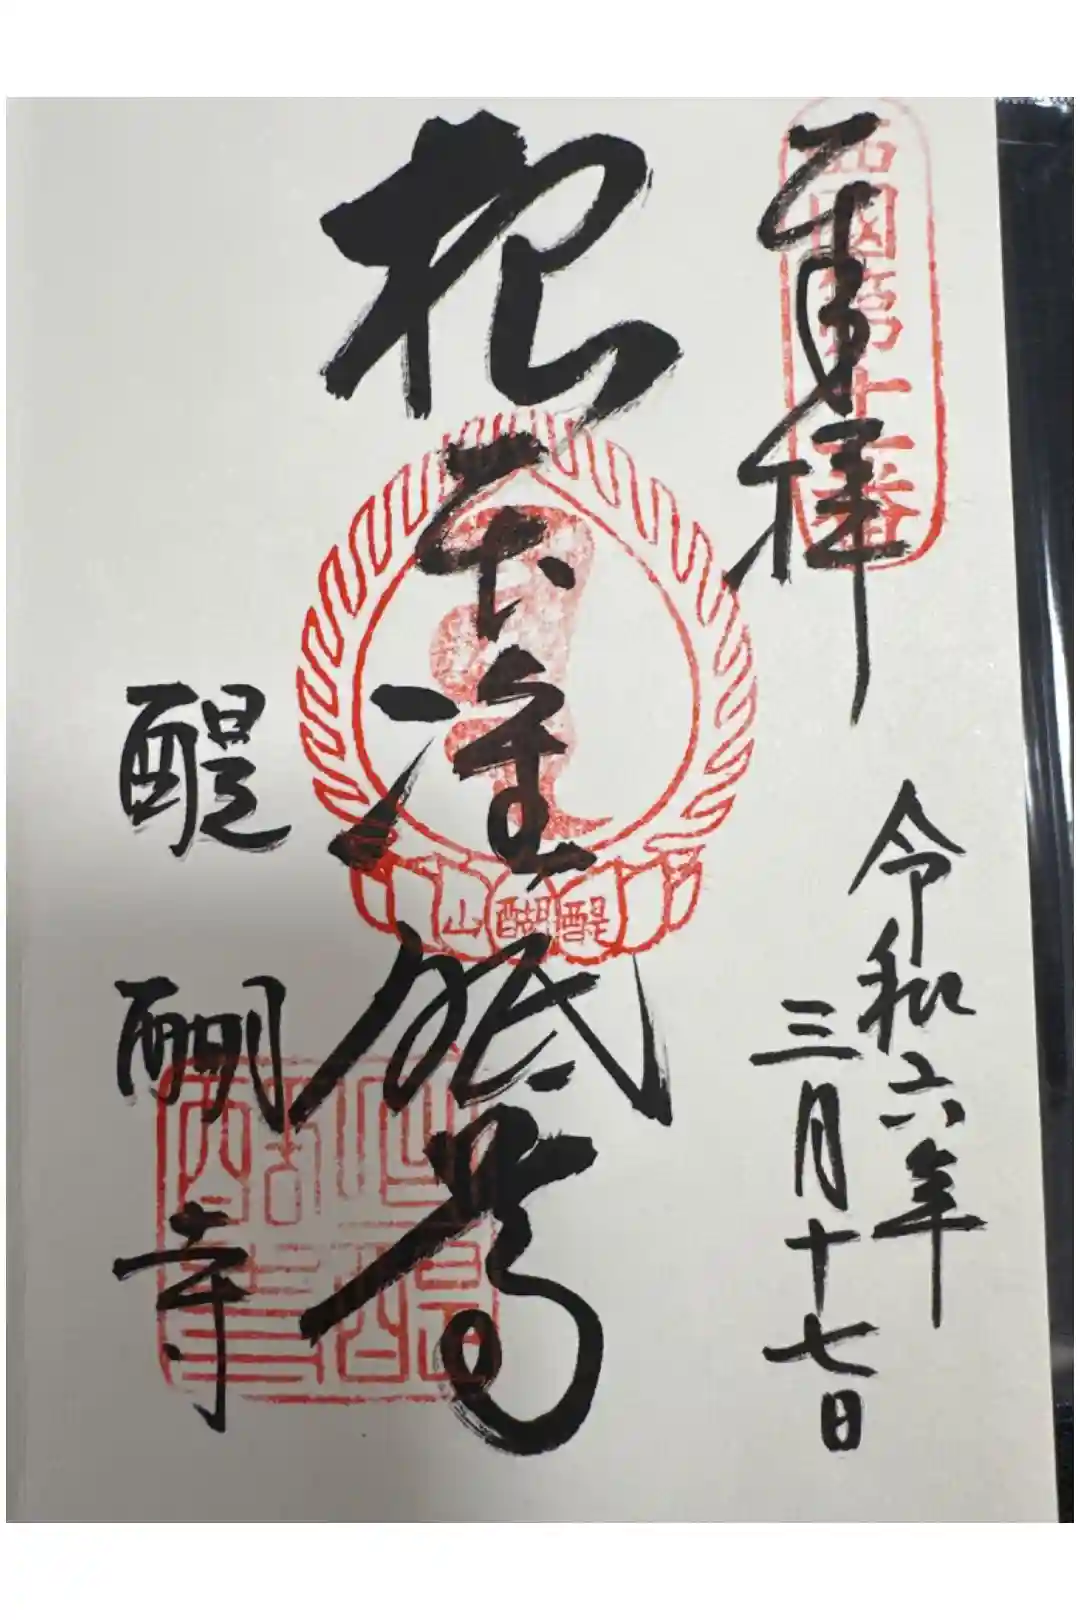 奉拝
西國第十一番
令和六年
三月十七日
根本准胝尊
醍醐山
醍醐寺